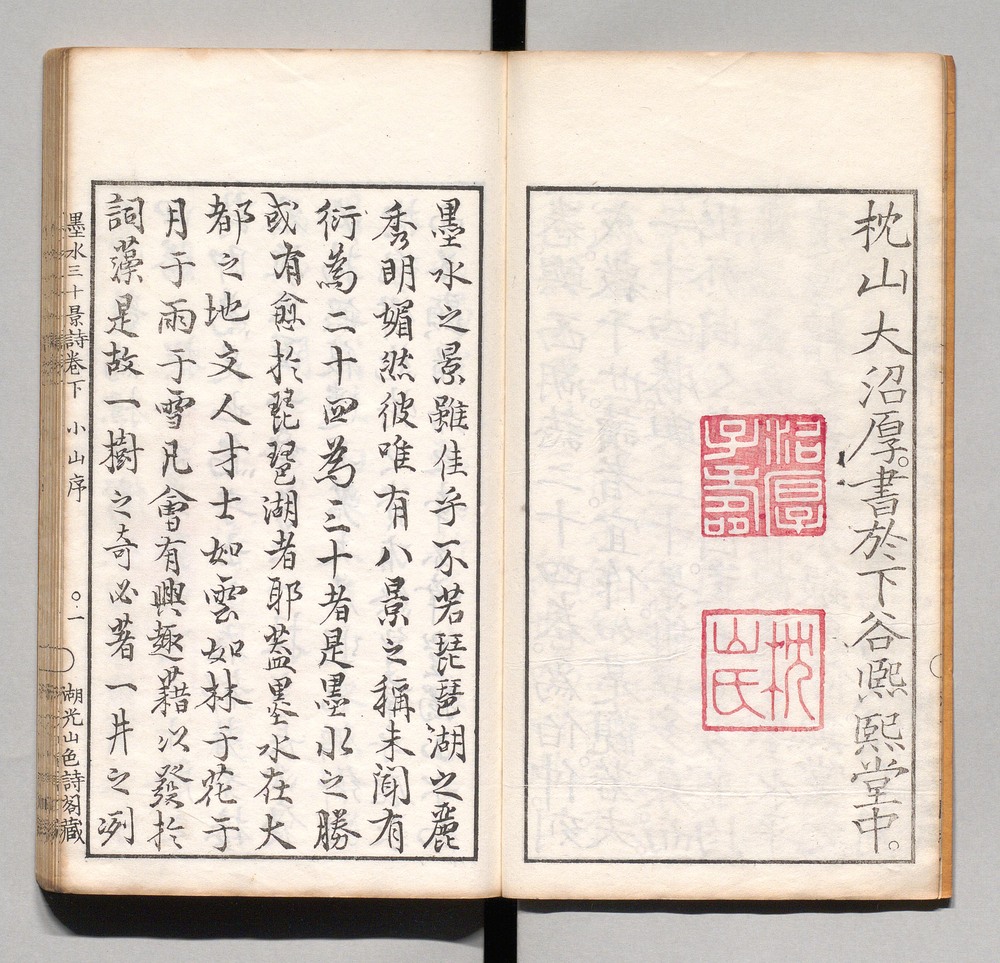 枕山大沼厚。書於下谷熙熙堂中。
沼厚
子壽
枕
山氏
墨水之景雖佳乎不若琵琶湖之麗
秀明媚然彼唯有八景之稱未聞有
衍為二十四為三十者是墨水之勝
或有愈於琵琶湖者耶蓋墨水在大
都之地文人才士如雲如林于花于
月于雨于雪凡會有興趣藉以發於
詞藻是故一樹之奇必著一井之冽
墨水三十景詩卷下 小山序 〇一 湖光山色詩閣藏